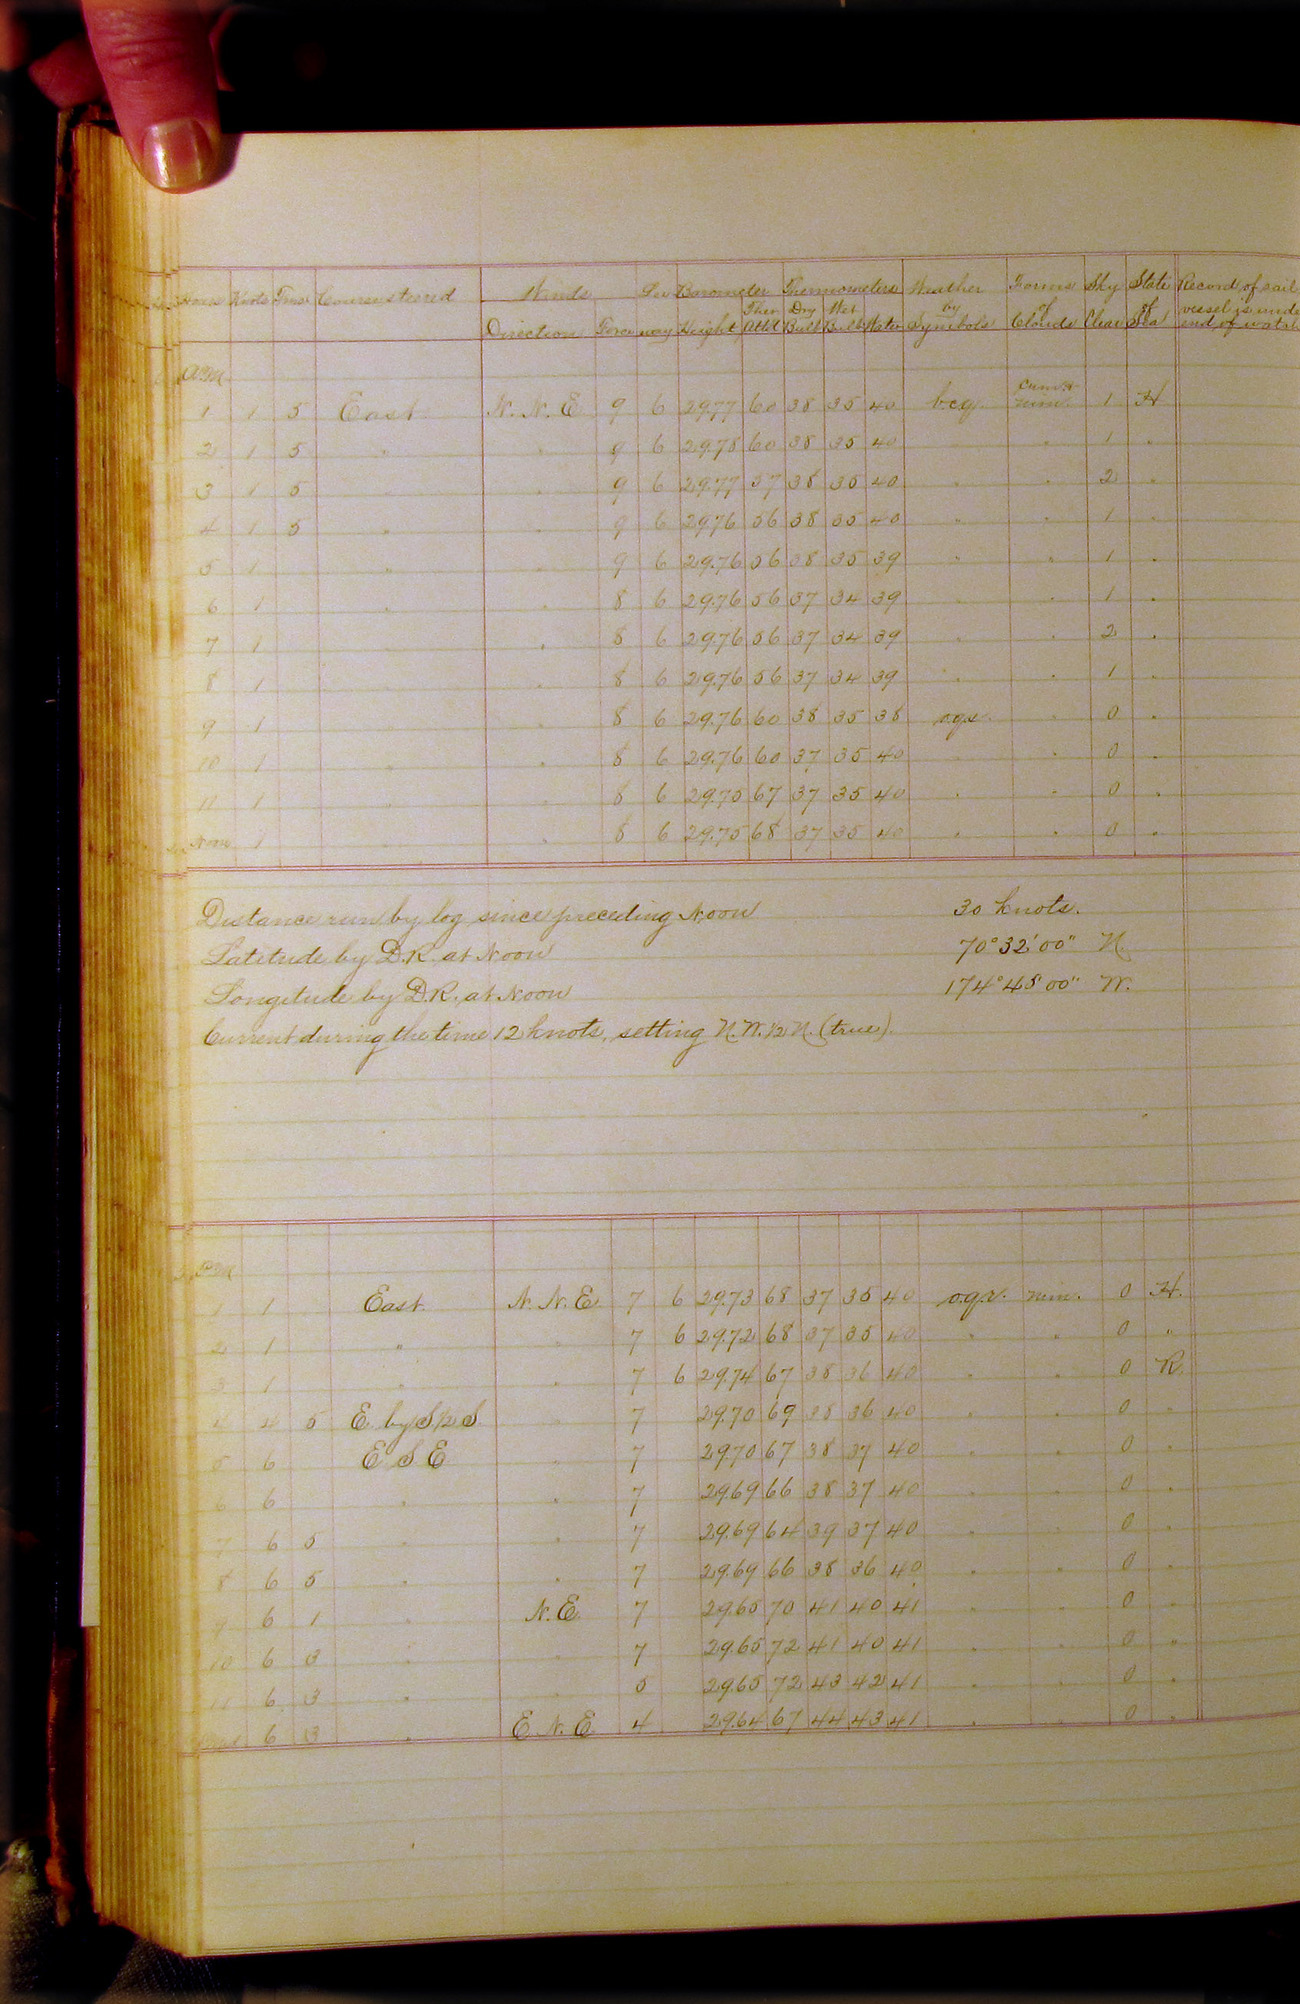 Hours Knots Tens Courses steered Winds Lee Barometer Thermometers Weather Forms Sky State Record of sail
Direction Force way Height Ther Att'd Dry Bulb Wet Bulb Water by Symbols of Clouds Clear of Sea vessel is under
end of watch
A.M.
1 1 5 East N. N. E 9 6 29.77 60 38 35 40 b.c.q. cum. nim. 1 H
2 1 5 " " 9 6 29.78 60 38 35 40 " " 1 "
3 1 5 " " 9 6 29.77 57 38 35 40 " " 2 "
4 1 5 " " 9 6 29.76 56 38 35 40 " " 1 "
5 1 " " 9 6 29.76 56 38 35 39 " " 1 "
6 1 " " 8 6 29.76 56 37 34 39 " " 1 "
7 1 " " 8 6 29.76 56 37 34 39 " " 2 "
8 1 " " 8 6 29.76 56 37 34 39 " " 1 "
9 1 " " 8 6 29.76 60 38 35 38 " 0 "
10 1 " " 8 6 29.76 60 37 35 40 " " 0 "
11 1 " " 8 6 29.75 67 37 35 40 " " 0 "
Noon 1 " " 8 6 29.75 68 37 35 40 " " 0 "
Distance run by log since preceding Noon 30 knots.
Latitude by D.R. at Noon 70° 32' 00" N.
Longitude by D.R. at Noon 174° 48' 00" W.
Current during the time 12 knots, setting N.W. 1/2 N. (true).
P.M.
1 1 East N. N. E 7 6 29.73 68 37 35 40 nim. 0 H.
2 1 " " 7 6 29.72 68 37 35 40 " " 0 "
3 1 " " 7 6 29.74 67 38 36 40 " " 0 R
4 4 5 E by S 1/2 S " 7 29.70 69 38 36 40 " " 0 "
5 6 E S E " 7 29.70 67 38 37 40 " " 0 "
6 6 " " 7 29.69 66 38 37 40 " " 0 "
7 6 5 " " 7 29.69 64 39 37 40 " " 0 "
8 6 5 " " 7 29.69 66 38 36 40 " " 0 "
9 6 1 " N. E. 7 29.65 70 41 40 41 " " 0 "
10 6 3 " " 7 29.65 72 41 40 41 " " 0 "
11 6 3 " " 5 29.65 72 43 42 41 " " 0 "
6 3 " E N. E. 4 29.64 67 44 43 41 " " 0 "